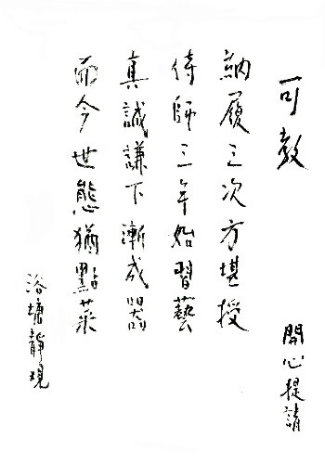 可教
開心提請
納履三次方堪授
侍師三年始習藝
真誠謙下漸成器
而今世態猶點菜
浴塘靜現